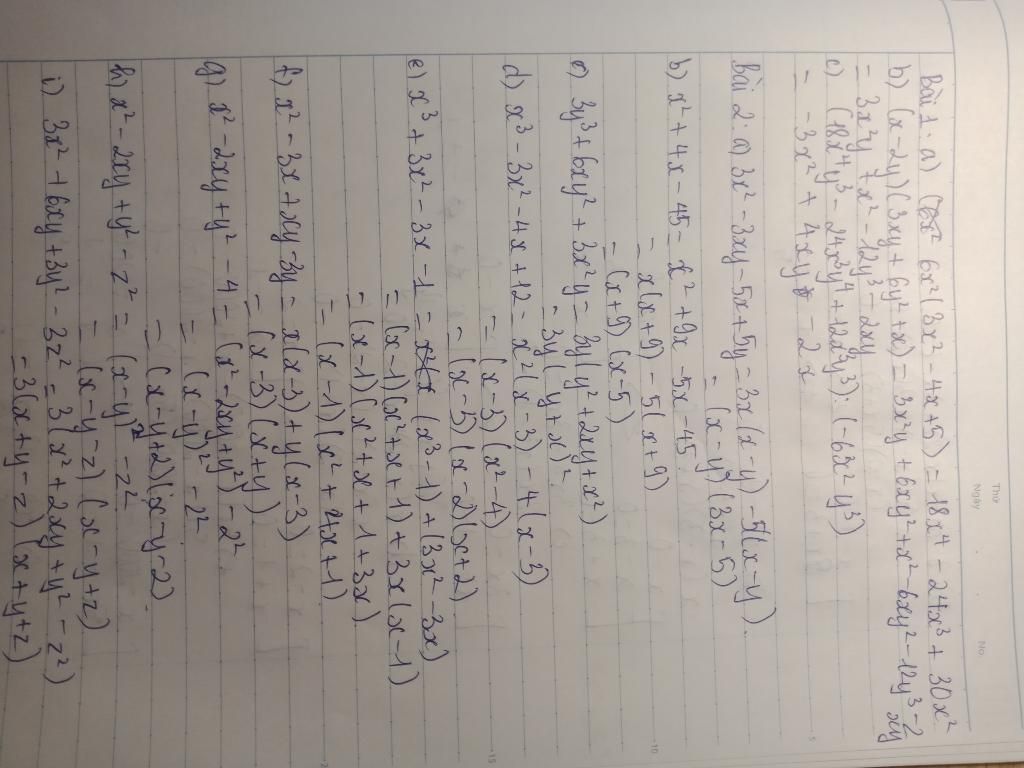 Thứ
Ngày
No.
Bài 1. a) 6x²(3x² - 4x + 5) = 18x⁴ - 24x³ + 30x²
b) (x - 2y)(3xy + 6y² + x) = 3x²y + 6xy² + x² - 6xy² - 12y³ - 2xy
= 3x²y + x² - 12y³ - 2xy
c) (18x⁴y³ - 24x³y⁴ + 12x³y³) : (-6x²y³)
= -3x² + 4xy - 2x
Bài 2. a) 3x² - 3xy - 5x + 5y = 3x(x - y) - 5(x - y)
= (x - y)(3x - 5)
b) x² + 4x - 45 = x² + 9x - 5x - 45
= x(x + 9) - 5(x + 9)
= (x + 9)(x - 5)
c) 3y³ + 6xy² + 3x²y = 3y(y² + 2xy + x²)
= 3y(y + x)²
d) x³ - 3x² - 4x + 12 = x²(x - 3) - 4(x - 3)
= (x - 3)(x² - 4)
= (x - 3)(x - 2)(x + 2)
e) x³ + 3x² - 3x - 1 = (x³ - 1) + (3x² - 3x)
= (x - 1)(x² + x + 1) + 3x(x - 1)
= (x - 1)(x² + x + 1 + 3x)
= (x - 1)(x² + 4x + 1)
f) x² - 3x + xy - 3y = x(x - 3) + y(x - 3)
= (x - 3)(x + y)
g) x² - 2xy + y² - 4 = (x² - 2xy + y²) - 2²
= (x - y)² - 2²
= (x - y + 2)(x - y - 2)
h) x² - 2xy + y² - z² = (x - y)² - z²
= (x - y - z)(x - y + z)
i) 3x² + 6xy + 3y² - 3z² = 3(x² + 2xy + y² - z²)
= 3(x + y - z)(x + y + z)